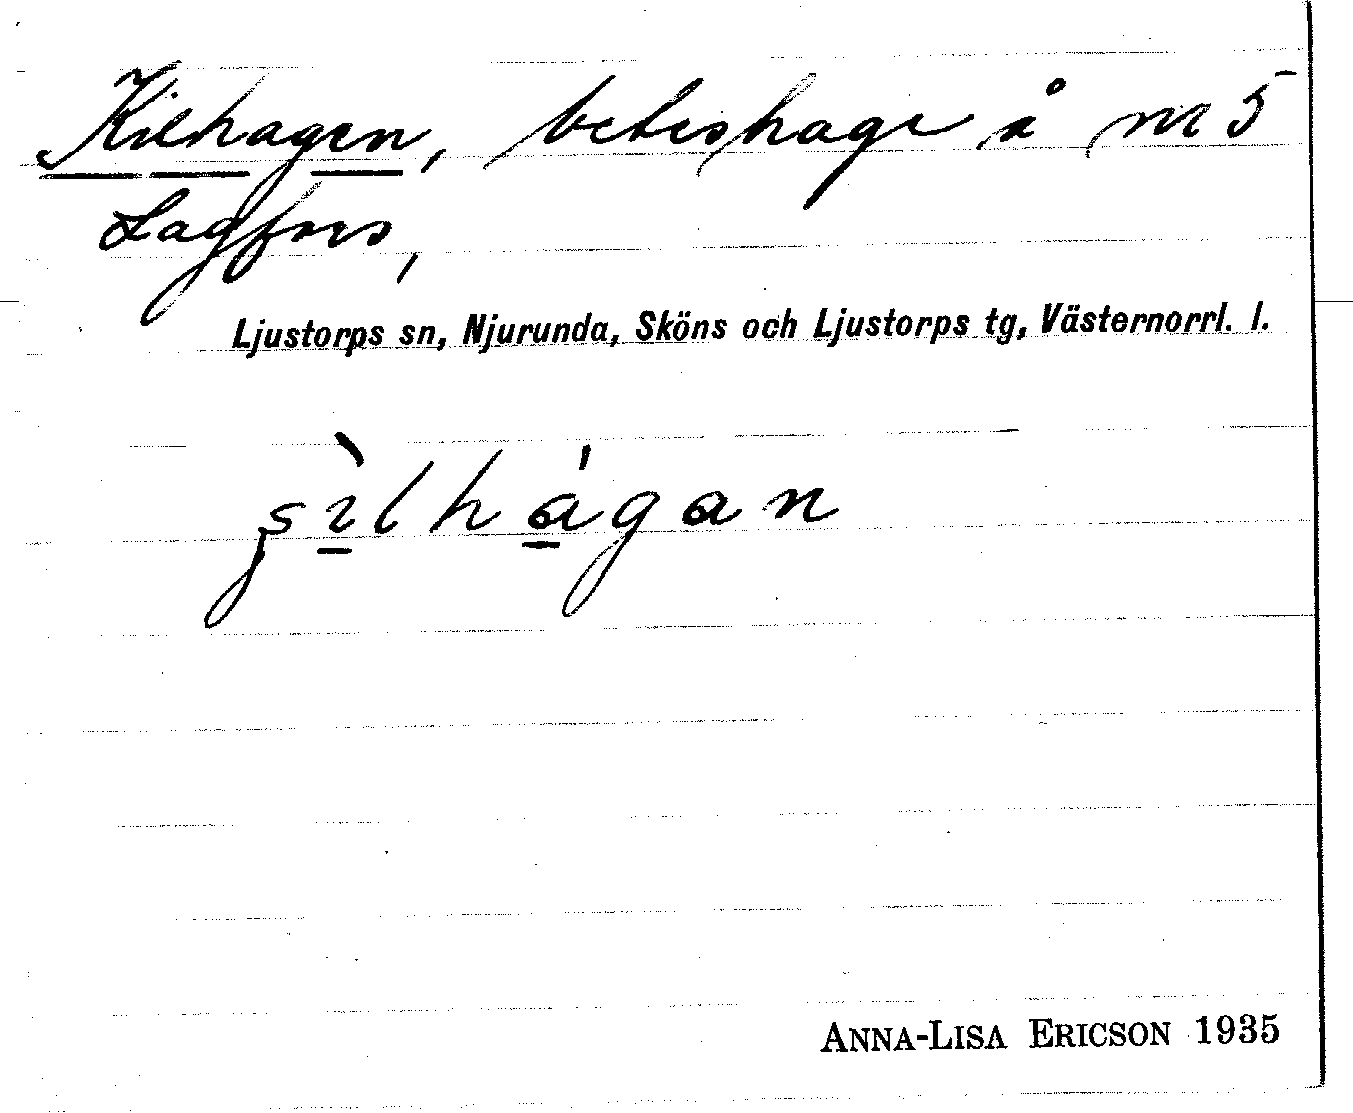 Kilhagen, beteshage å nr 5
Lagfors,
Ljustorps sn, Njurunda, Sköns och Ljustorps tg, Västernorrl. l.
ʂìlhágan
ANNA-LISA ERICSON 1935